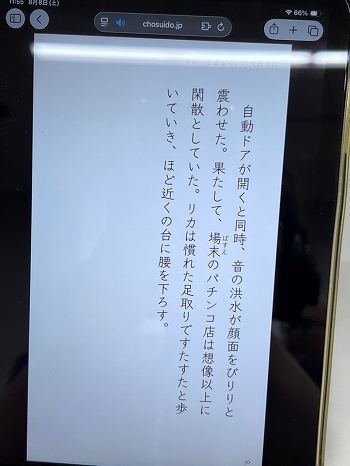 11:55 8月8日(土)
66%
chosuido.jp
自動ドアが開くと同時、音の洪水が顔面をびりりと
震わせた。果たして、場末のパチンコ店は想像以上に
ばすえ
閑散としていた。リカは慣れた足取りですたすたと歩
いていき、ほど近くの台に腰を下ろす。